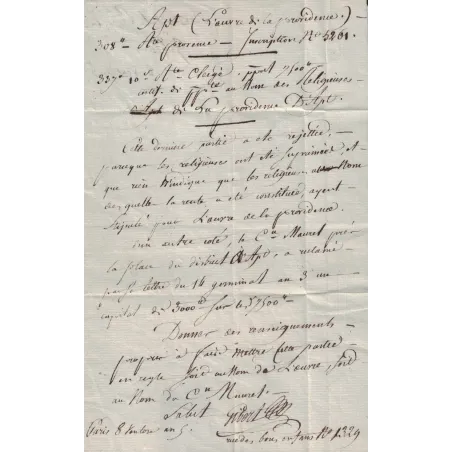 Apt (L'œuvre de la providence.)
308# Rte provence — Inscription No 5201.
337# 10s Rte Clergé, ppart 7500#
constt. de ppte au Nom des Religieuses
de La providence D'Apt.
Cette derniere partie a été rejettée,
parceque les religieuses ont été suprimées et
que rien n'indique que les religieuses Nom
des quelles la rente a été constituée, ayent
stipulé pour L'œuvre de la providence.
D'un autre coté, le Cen Mauret près
la place du district d'Apt, a reclamé
par sa lettre du 14 germinal an 3 un
capital de 3000# sur les 7500#
Donner des renseignements
propres à faire mettre cette partie
en regle soit au Nom de L'œuvre, soit
au Nom du Cen Mauret.
Salut
Paris 8 Ventose an 5.
rue des bons enfans No 1324